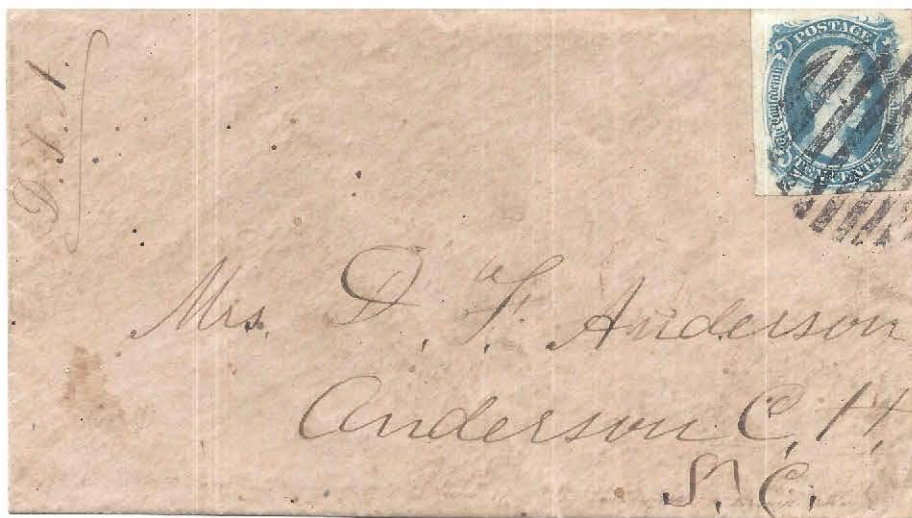 POSTAGE
TEN CENTS
Mrs. D. F. Anderson
Anderson C. H.
S. C.